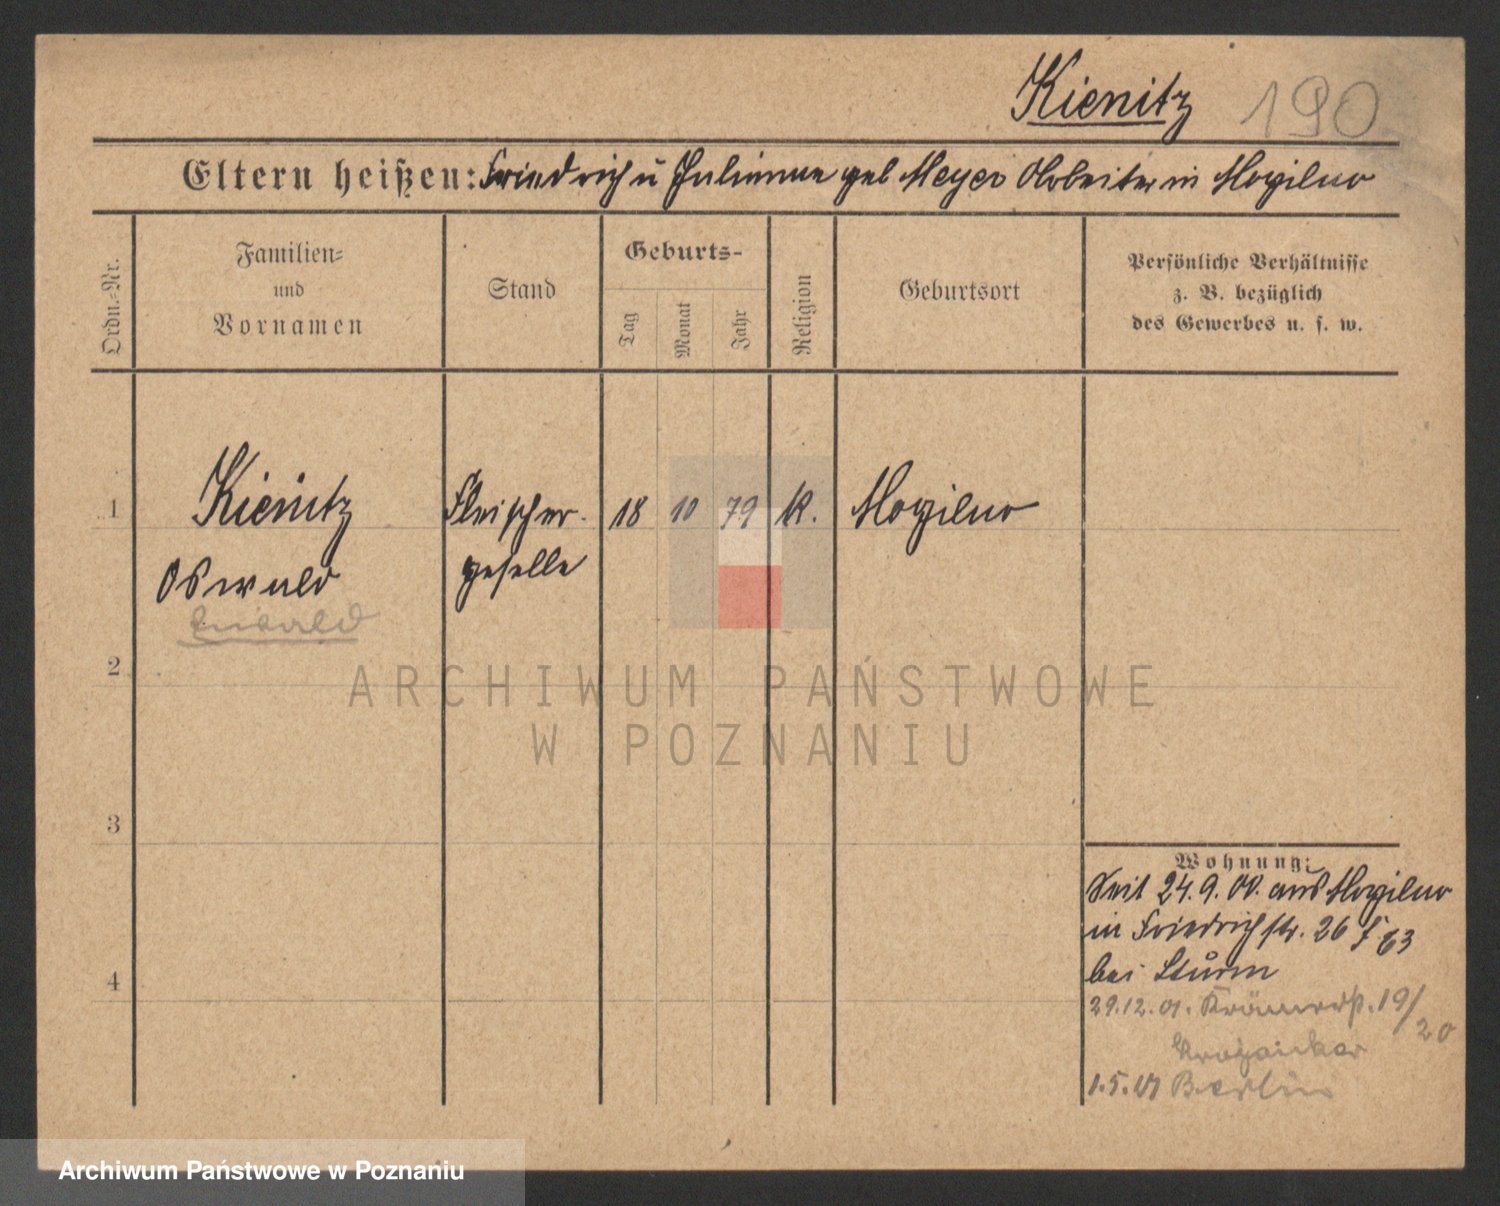 Kienitz 190
Eltern heißen: Friedrich u Julianna geb Meyer Arbeiter in Mogilno
Ordn.=Nr.
Familien=
und
Vornamen
Stand
Geburts-
Tag
Monat
Jahr
Religion
Geburtsort
Persönliche Verhältnisse
z. B. bezüglich
des Gewerbes u. s. w.
1 Kienitz Fleischer- 18 10 79 K. Mogilno
Oswald geselle
2
ARCHIWUM PAŃSTWOWE
W POZNANIU
3
Wohnung:
Seit 24.9.00. aus Mogilno
in Friedrichstr. 26
bei Sturm
4
29.12.01. 19/20
1.5. Berlin
Archiwum Państwowe w Poznaniu